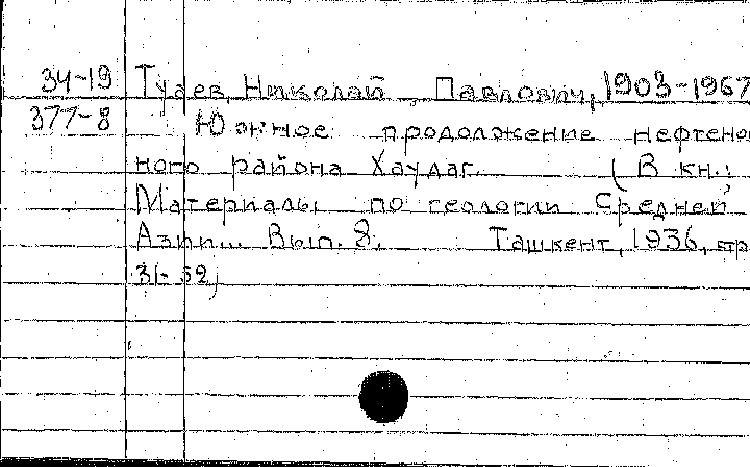 34-19 Туаев, Николай Павлович, 1903-1967
377-8 Южное продолжение нефтенос
ного района Хаудаг. (В кн.:
Материалы по геологии Средней
Азии... Вып. 8. Ташкент, 1936, стр
31-52)